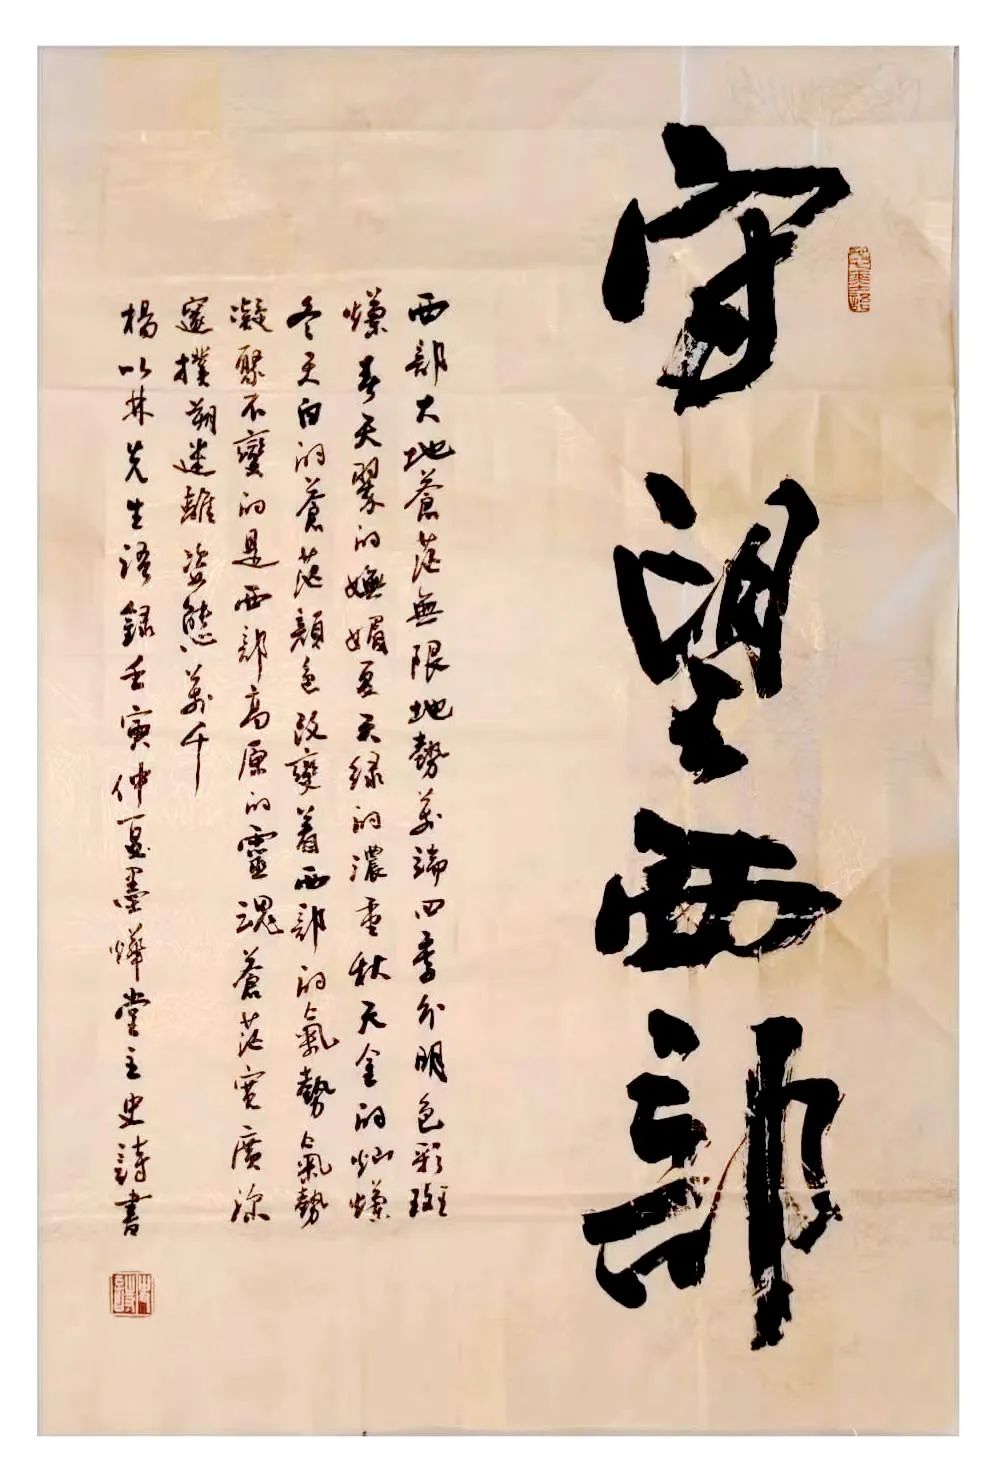 守望西部
西部大地蒼茫無限地勢萬端四季分明色彩斑
爛春天翠的嫵媚夏天绿的濃重秋天金的灿爛
冬天白的蒼茫顏色改變着西部的氣勢氣勢
凝聚不變的是西部高原的靈魂蒼茫寬廣深
邃撲朔迷離姿態萬千
楊以林先生语録壬寅仲夏墨燁堂主史詩書